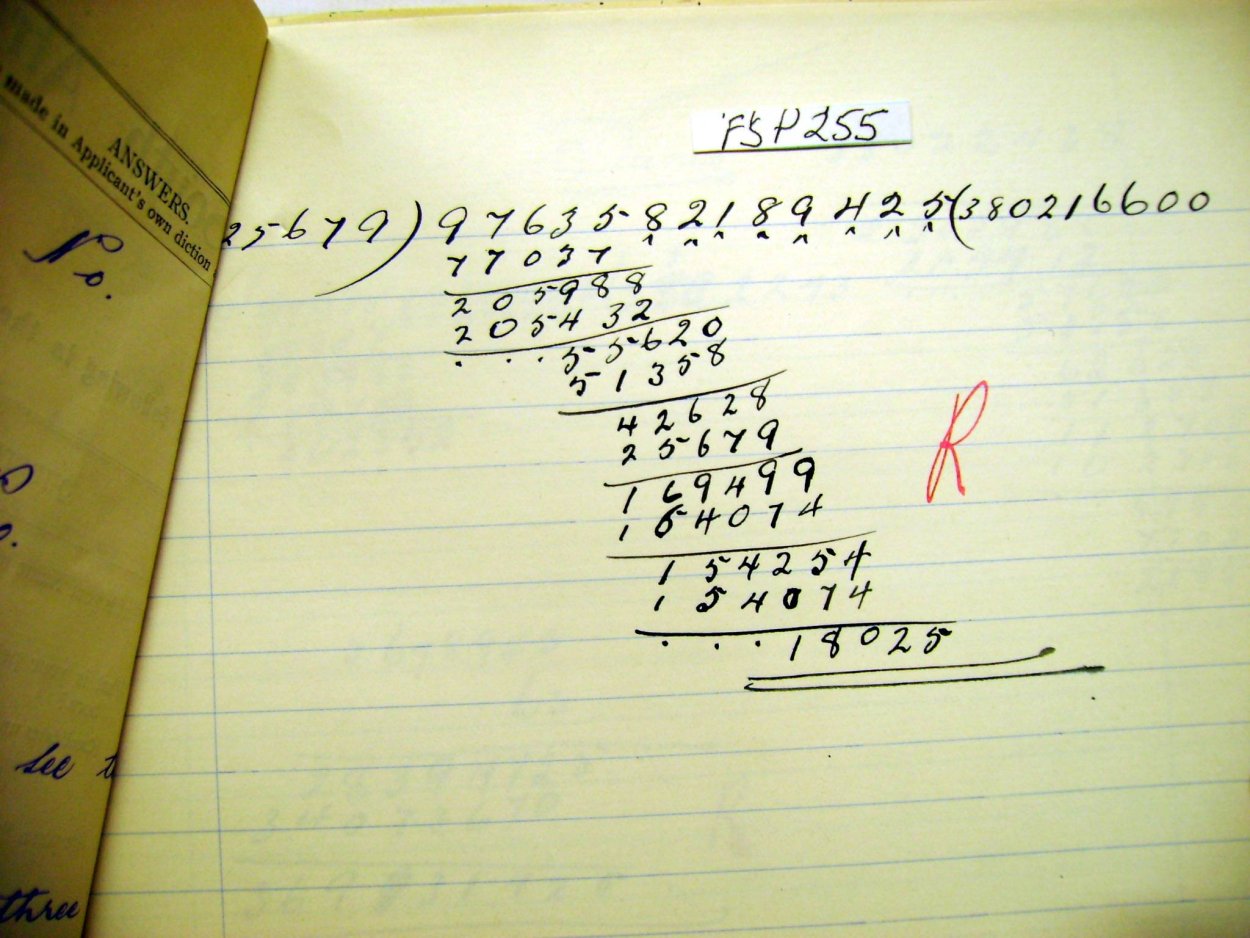 ANSWERS.
made in Applicant's own diction
No.
see t
three
FSP255
25679)9763582189425(380216600
77037
205988
205432
...55620
51358
42628
25679
169499
154074
154254
154074
...18025
R